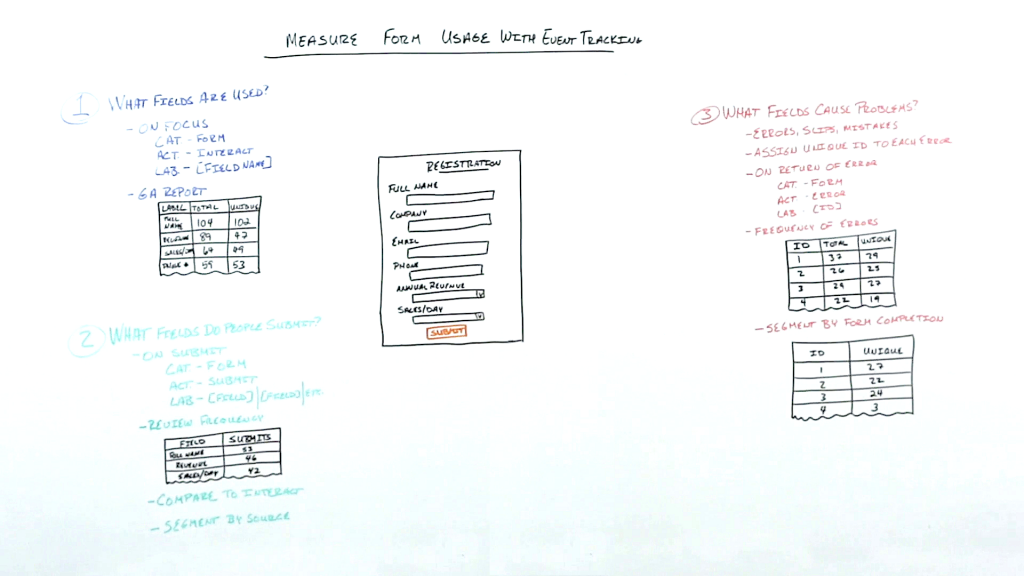 MEASURE FORM USAGE WITH EVENT TRACKING
1 WHAT FIELDS ARE USED?
- ON FOCUS
CAT - FORM
ACT - INTERACT
LAB - [FIELD NAME]
- GA REPORT
LABEL TOTAL UNIQUE
FULL NAME 104 102
REVENUE 89 47
SALES/DAY 64 49
PHONE # 59 53
2 WHAT FIELDS DO PEOPLE SUBMIT?
- ON SUBMIT
CAT - FORM
ACT - SUBMIT
LAB - [FIELD]|[FIELD]|ETC.
- REVIEW FREQUENCY
FIELD SUBMITS
FULL NAME 53
REVENUE 46
SALES/DAY 42
- COMPARE TO INTERACT
- SEGMENT BY SOURCE
REGISTRATION
FULL NAME
COMPANY
EMAIL
PHONE
ANNUAL REVENUE
SALES/DAY
SUBMIT
3 WHAT FIELDS CAUSE PROBLEMS?
- ERRORS, SLIPS, MISTAKES
- ASSIGN UNIQUE ID TO EACH ERROR
- ON RETURN OF ERROR
CAT - FORM
ACT - ERROR
LAB - [ID]
- FREQUENCY OF ERRORS
ID TOTAL UNIQUE
1 37 29
2 26 25
3 29 27
4 22 19
- SEGMENT BY FORM COMPLETION
ID UNIQUE
1 27
2 22
3 24
4 3